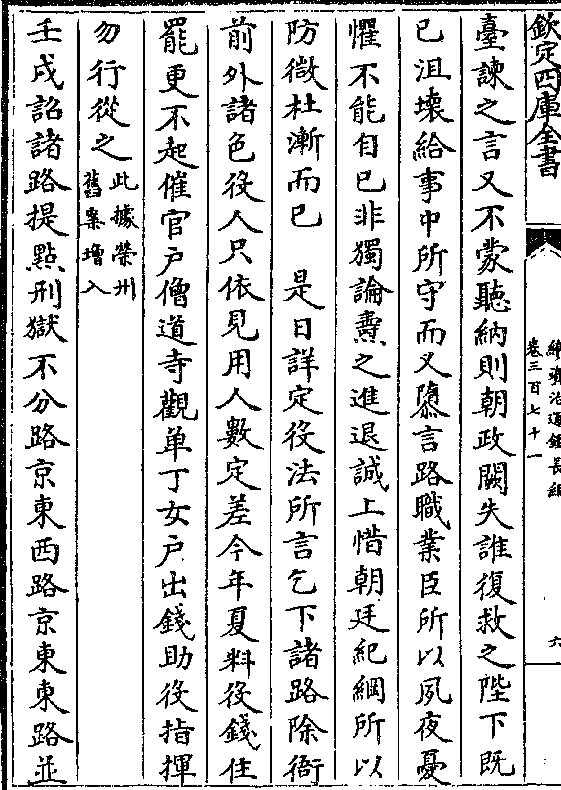 欽定四庫全書
續資治通鑑長編
卷三百七十一
六
臺諫之言又不蒙聽納則朝政闕失誰復救之陛下既
已沮壞給事中所守而又隳言路職業臣所以夙夜憂
懼不能自已非獨論燾之進退誠上惜朝廷紀綱所以
防微杜漸而已　是日詳定役法所言乞下諸路除衙
前外諸色役人只依見用人數定差今年夏料役錢住
罷更不起催官戶僧道寺觀单丁女戶出錢助役指揮
勿行從之此據榮州
舊案増入
壬戌詔諸路提點刑獄不分路京東西路京東東路並